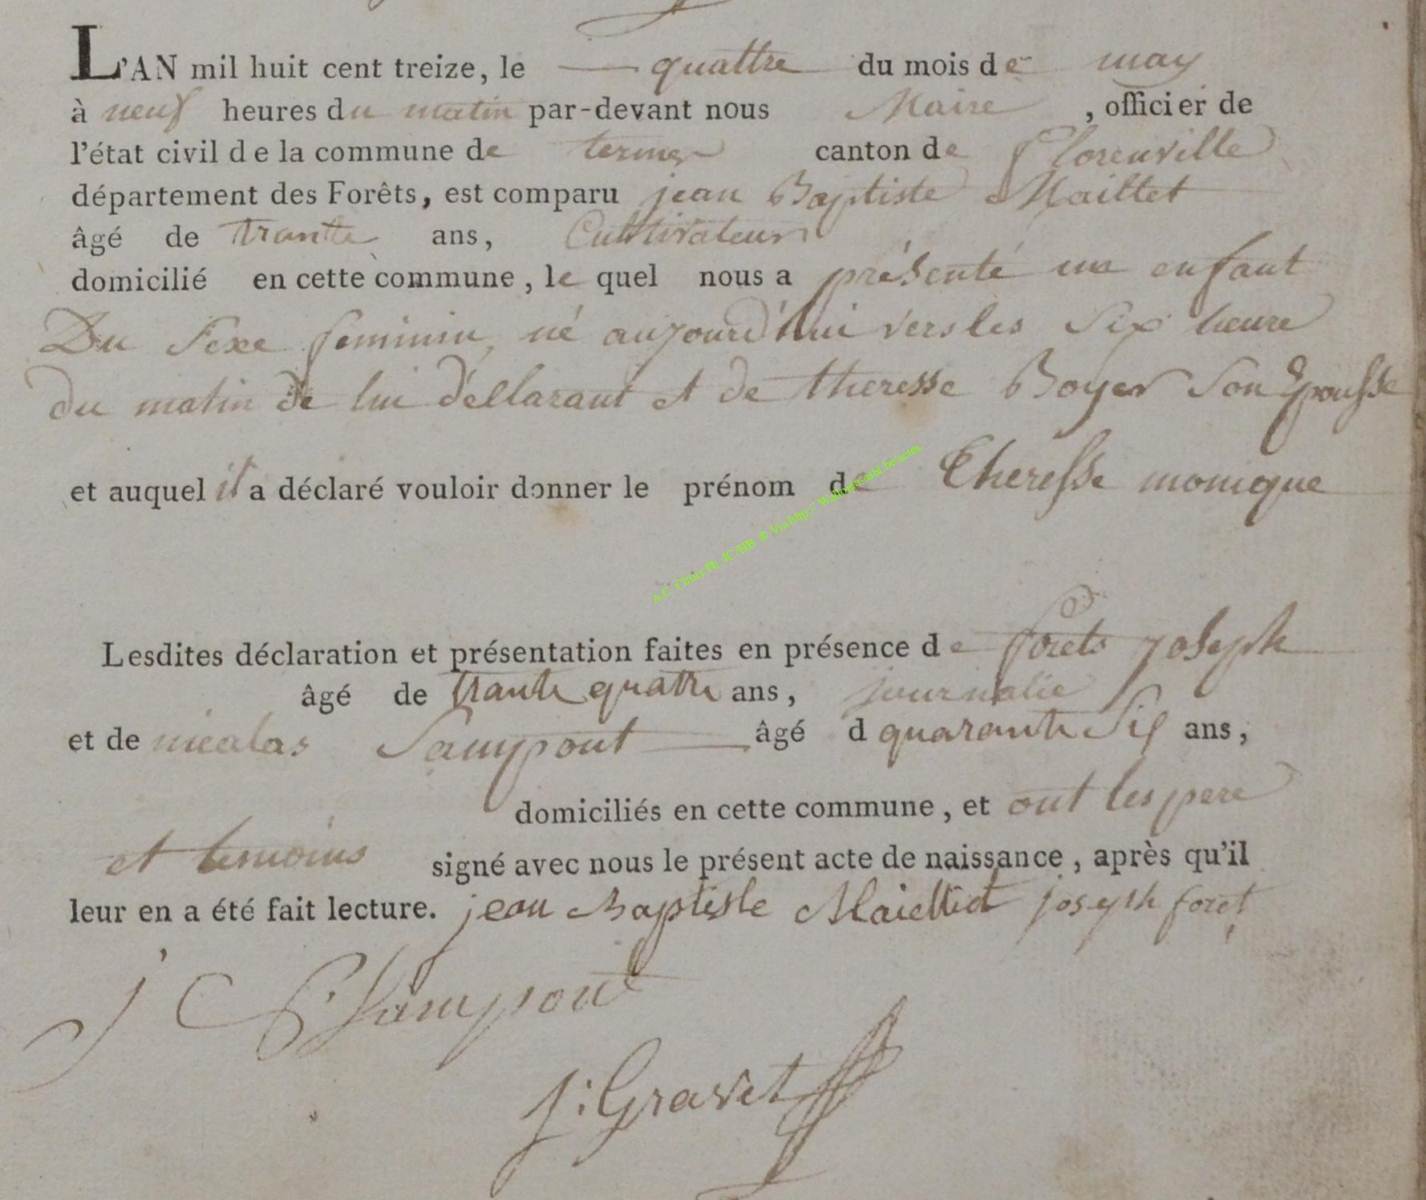 L'AN mil huit cent treize, le quattre du mois de may
à neuf heures du matin par-devant nous Maire , officier de
l'état civil de la commune de termes canton de florenville
département des Forêts, est comparu jean Baptiste Maillet
âgé de trante ans, Cultivateur
domicilié en cette commune, le quel nous a présenté un enfant
Du sexe feminin, né aujourd'hui vers les six heure
du matin de lui déllarant et de theresse Boyer son Epousse
et auquel il a déclaré vouloir donner le prénom de Theresse monique
Lesdites déclaration et présentation faites en présence de forets joseph
âgé de trante quatre ans, journalie
et de nicalas Sampont âgé d quarante Six ans,
domiciliés en cette commune, et ont les pere
et temoins signé avec nous le présent acte de naissance, après qu'il
leur en a été fait lecture. jean Baptiste Maielliet joseph foret
Sampont
j: Gravet